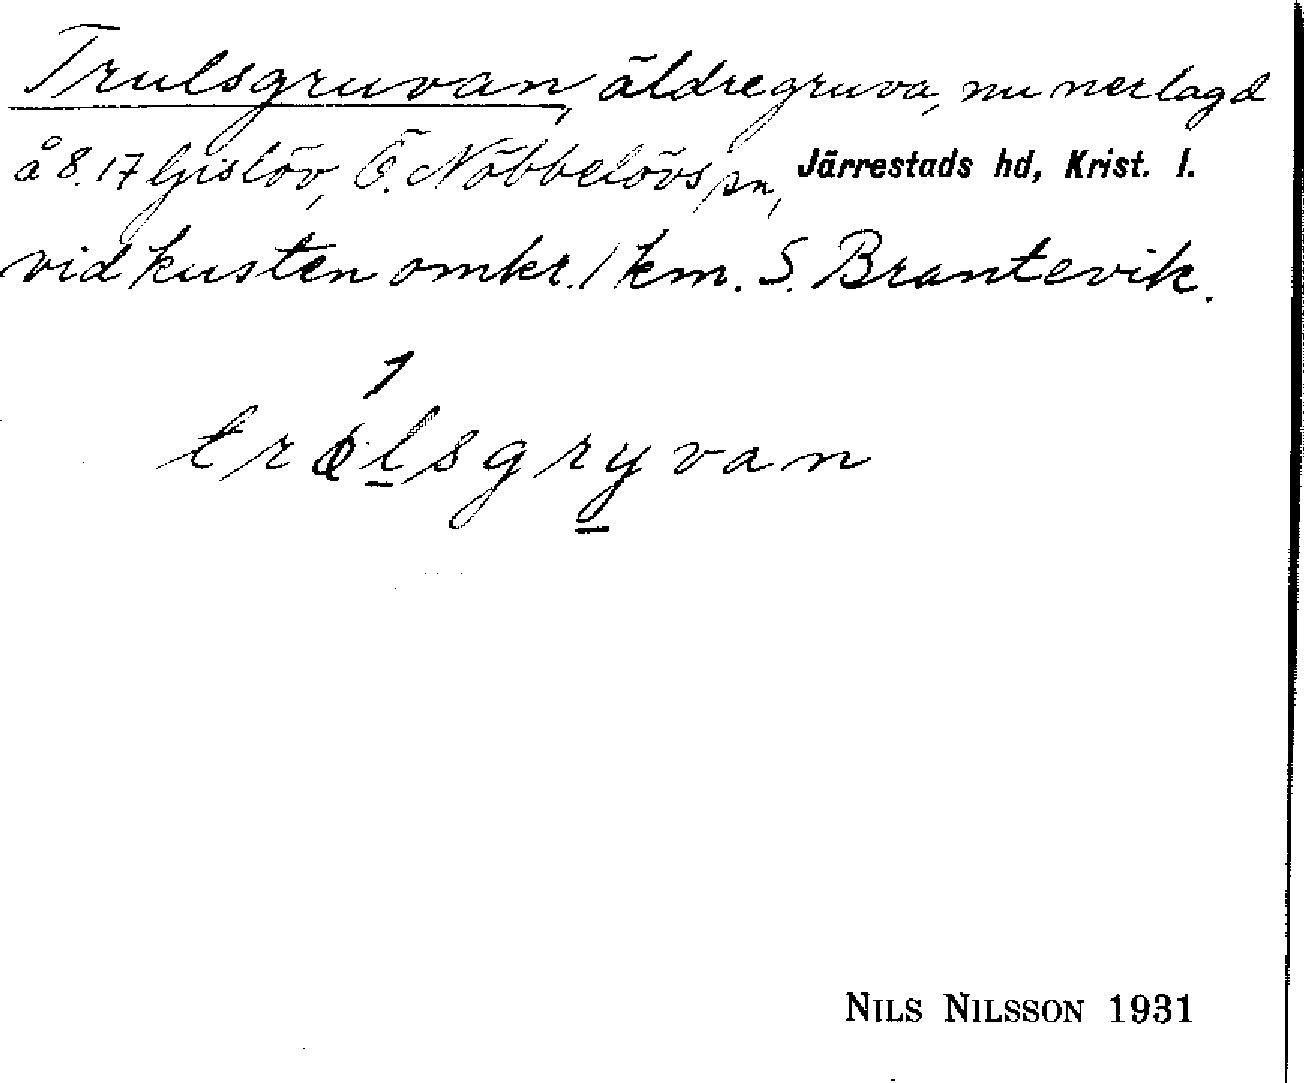 Trulsgruvan, äldre gruva, nu nerlagd
å 8.17 Gislöv, Ö. Nöbbelövs sn, Järrestads hd, Krist. l.
vid kusten omkr. 1 km. S. Brantevik.
1
trolsgryvan
NILS NILSSON 1931